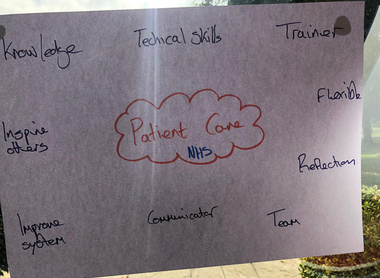 Knowledge
Techical skills
Trainer
Flexible
Inspire
others
Patient Care
NHS
Reflection
Improve
system
Communicator
Team